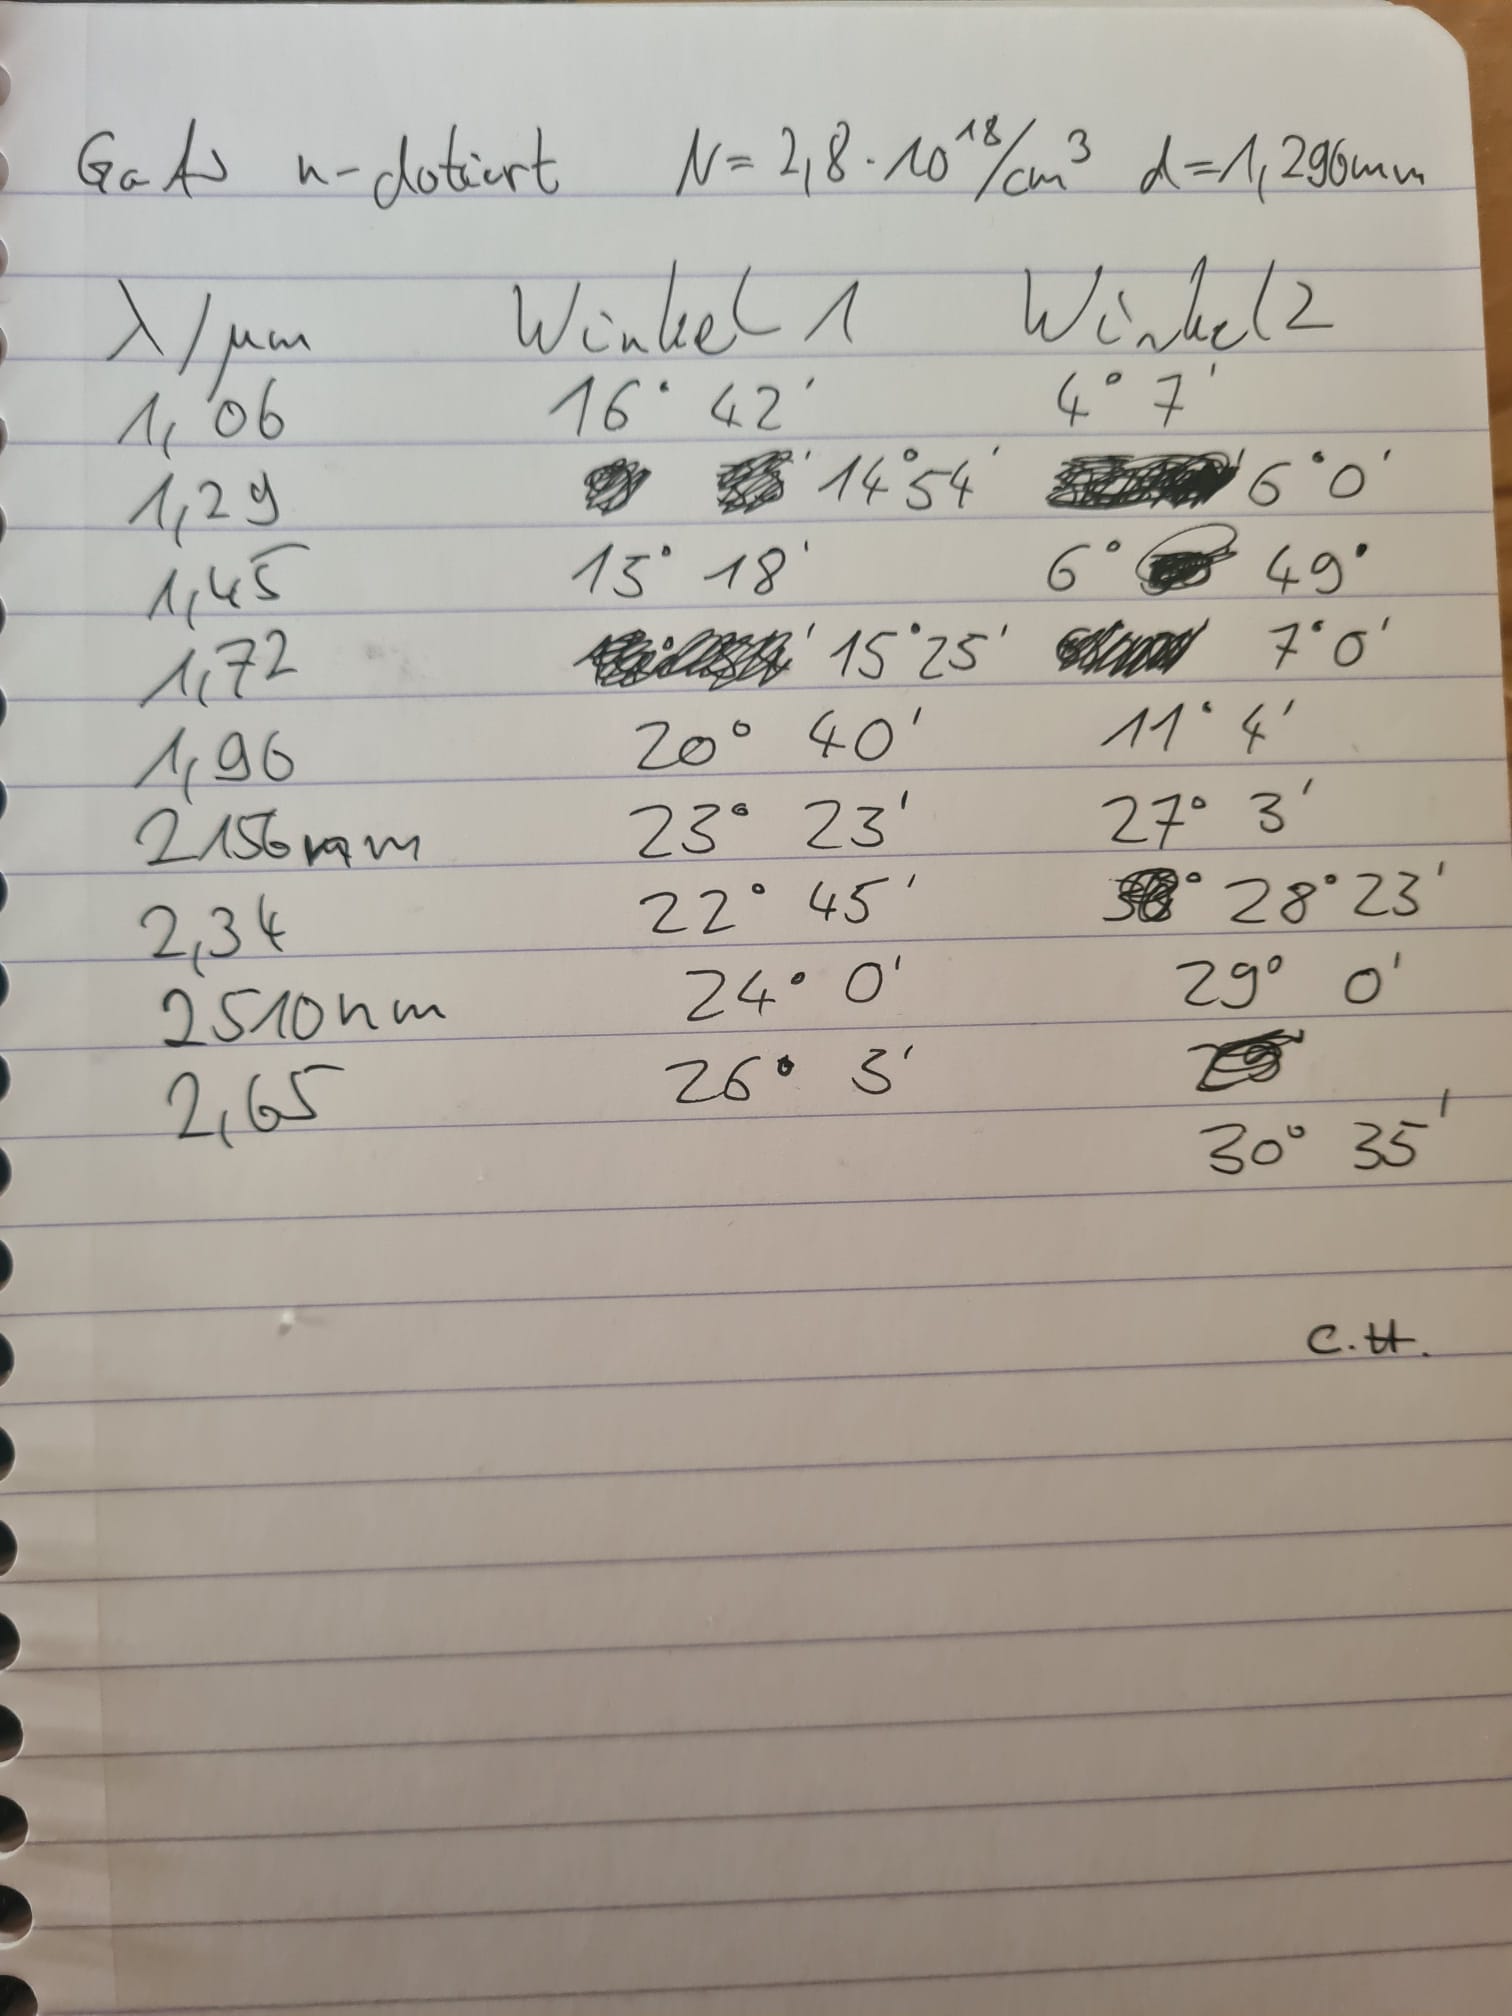 GaAs n-dotiert N = 2,8 · 10^18/cm^3 d=1,296mm
λ/µm Winkel 1 Winkel 2
1,06 16° 42' 4° 7'
1,29 14° 54' 6° 0'
1,45 15° 18' 6° 49°
1,72 15° 25' 7° 0'
1,96 20° 40' 11° 4'
2156nm 23° 23' 27° 3'
2,34 22° 45' 28° 23'
2510nm 24° 0' 29° 0'
2,65 26° 3'
30° 35'
C.H.